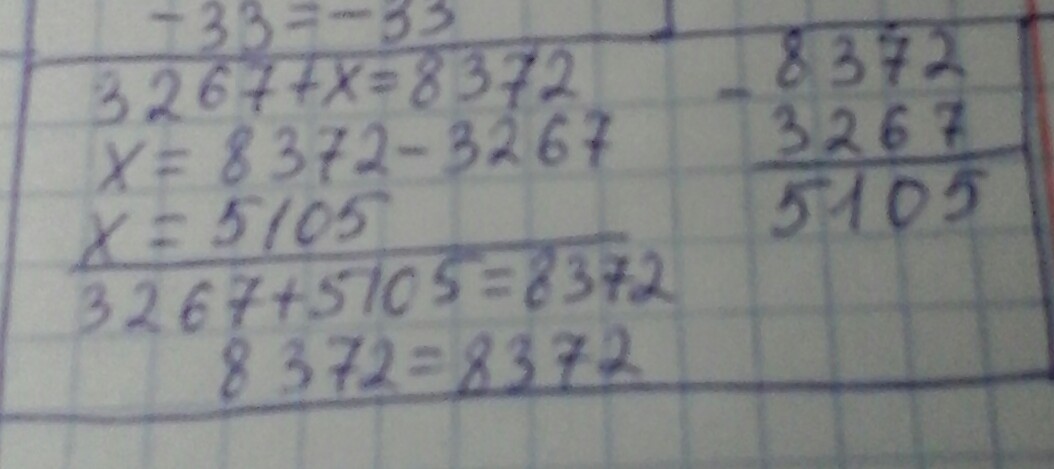 -33=-33
3267+x=8372
x=8372-3267
x=5105
3267+5105=8372
8372=8372
- 8372
3267
5105